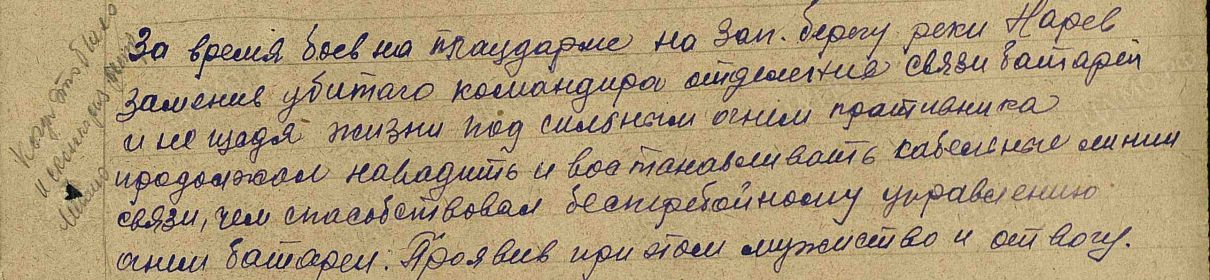 Когда это было
и сколько раз
За время боев на плацдарме на зап. берегу реки Нарев
заменив убитого командира отделения связи батареи
и не щадя жизни под сильным огнем противника
продолжал наводить и востанавливать кабельные линии
связи, чем способствовал бесперебойному управлению
огнем батареи. Проявив при этом мужество и отвогу.